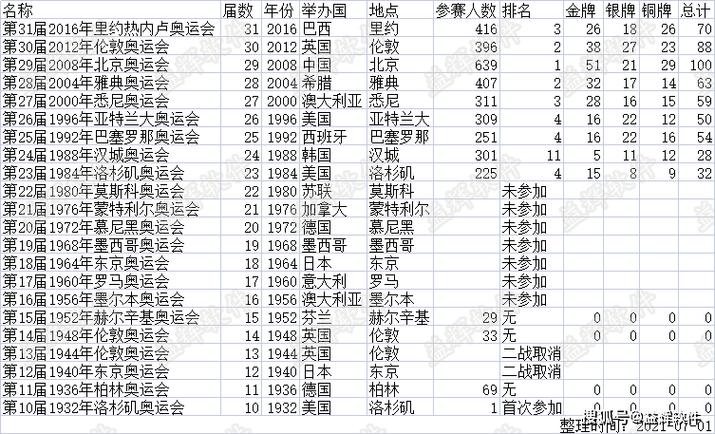 名称 届数 年份 举办国 地点 参赛人数 排名 金牌 银牌 铜牌 总计
第31届2016年里约热内卢奥运会 31 2016 巴西 里约 416 3 26 18 26 70
第30届2012年伦敦奥运会 30 2012 英国 伦敦 396 2 38 27 23 88
第29届2008年北京奥运会 29 2008 中国 北京 639 1 51 21 29 100
第28届2004年雅典奥运会 28 2004 希腊 雅典 407 2 32 17 14 63
第27届2000年悉尼奥运会 27 2000 澳大利亚 悉尼 311 3 28 16 15 59
第26届1996年亚特兰大奥运会 26 1996 美国 亚特兰大 309 4 16 22 12 50
第25届1992年巴塞罗那奥运会 25 1992 西班牙 巴塞罗那 251 4 16 22 16 54
第24届1988年汉城奥运会 24 1988 韩国 汉城 301 11 5 11 12 28
第23届1984年洛杉矶奥运会 23 1984 美国 洛杉矶 225 4 15 8 9 32
第22届1980年莫斯科奥运会 22 1980 苏联 莫斯科 未参加
第21届1976年蒙特利尔奥运会 21 1976 加拿大 蒙特利尔 未参加
第20届1972年慕尼黑奥运会 20 1972 德国 慕尼黑 未参加
第19届1968年墨西哥奥运会 19 1968 墨西哥 墨西哥 未参加
第18届1964年东京奥运会 18 1964 日本 东京 未参加
第17届1960年罗马奥运会 17 1960 意大利 罗马 未参加
第16届1956年墨尔本奥运会 16 1956 澳大利亚 墨尔本 未参加
第15届1952年赫尔辛基奥运会 15 1952 芬兰 赫尔辛基 29 无 0 0 0 0
第14届1948年伦敦奥运会 14 1948 英国 伦敦 33 无 0 0 0 0
第13届1944年伦敦奥运会 13 1944 英国 伦敦 二战取消
第12届1940年东京奥运会 12 1940 日本 东京 二战取消
第11届1936年柏林奥运会 11 1936 德国 柏林 69 无 0 0 0 0
第10届1932年洛杉矶奥运会 10 1932 美国 洛杉矶 1 首次参加 0 0 0 0
搜狐号@益辉软件
整理时间：2021-07-01